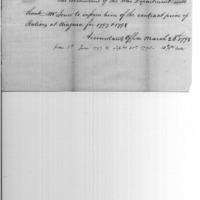 The Accountant of the War Department will
thank Mr Jones to inform him of the contract price of
Rations at Niagara for 1797 & 1798
Accountants Office March 26th 1798
from 1st 1797 to Sept 30th 1798